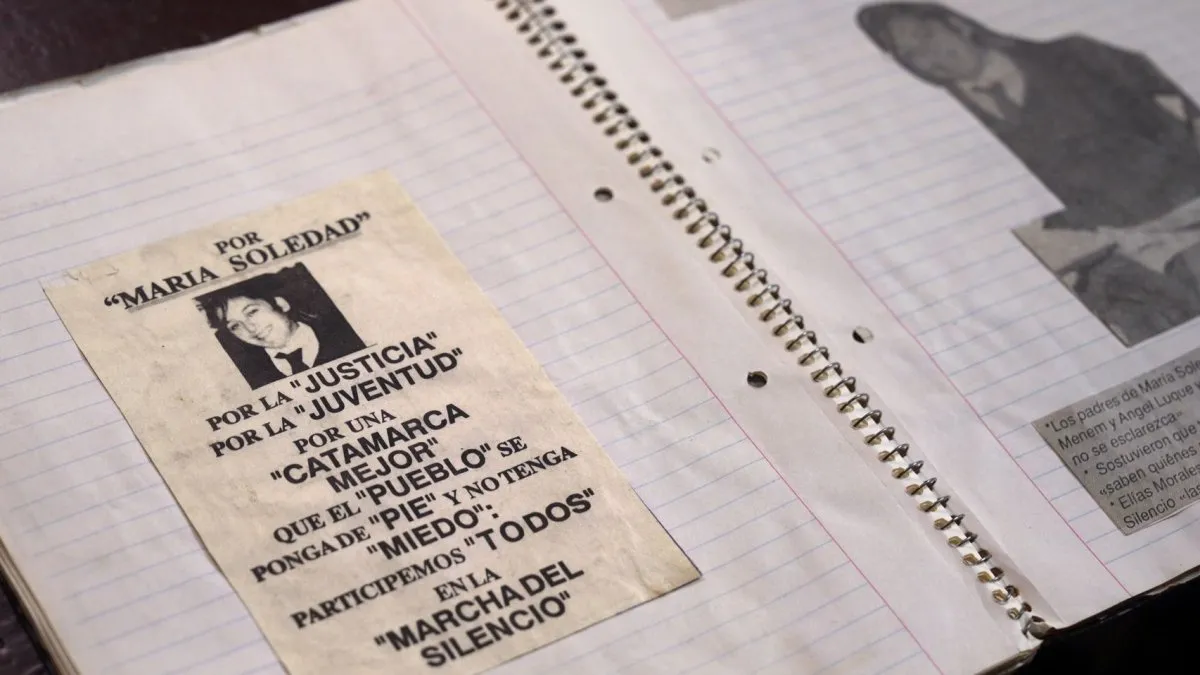 POR
“MARIA SOLEDAD”
POR LA "JUSTICIA"
POR LA "JUVENTUD"
POR UNA
"CATAMARCA
MEJOR"
QUE EL "PUEBLO" SE
PONGA DE "PIE" Y NO TENGA
"MIEDO":
PARTICIPEMOS "TODOS"
EN LA
"MARCHA DEL
SILENCIO"
*Los padres de María Sole
Menem y Angel Luque
no se esclarezca»
* Sostuvieron que
«saben quiénes
* Elías Morale
Silencio «las